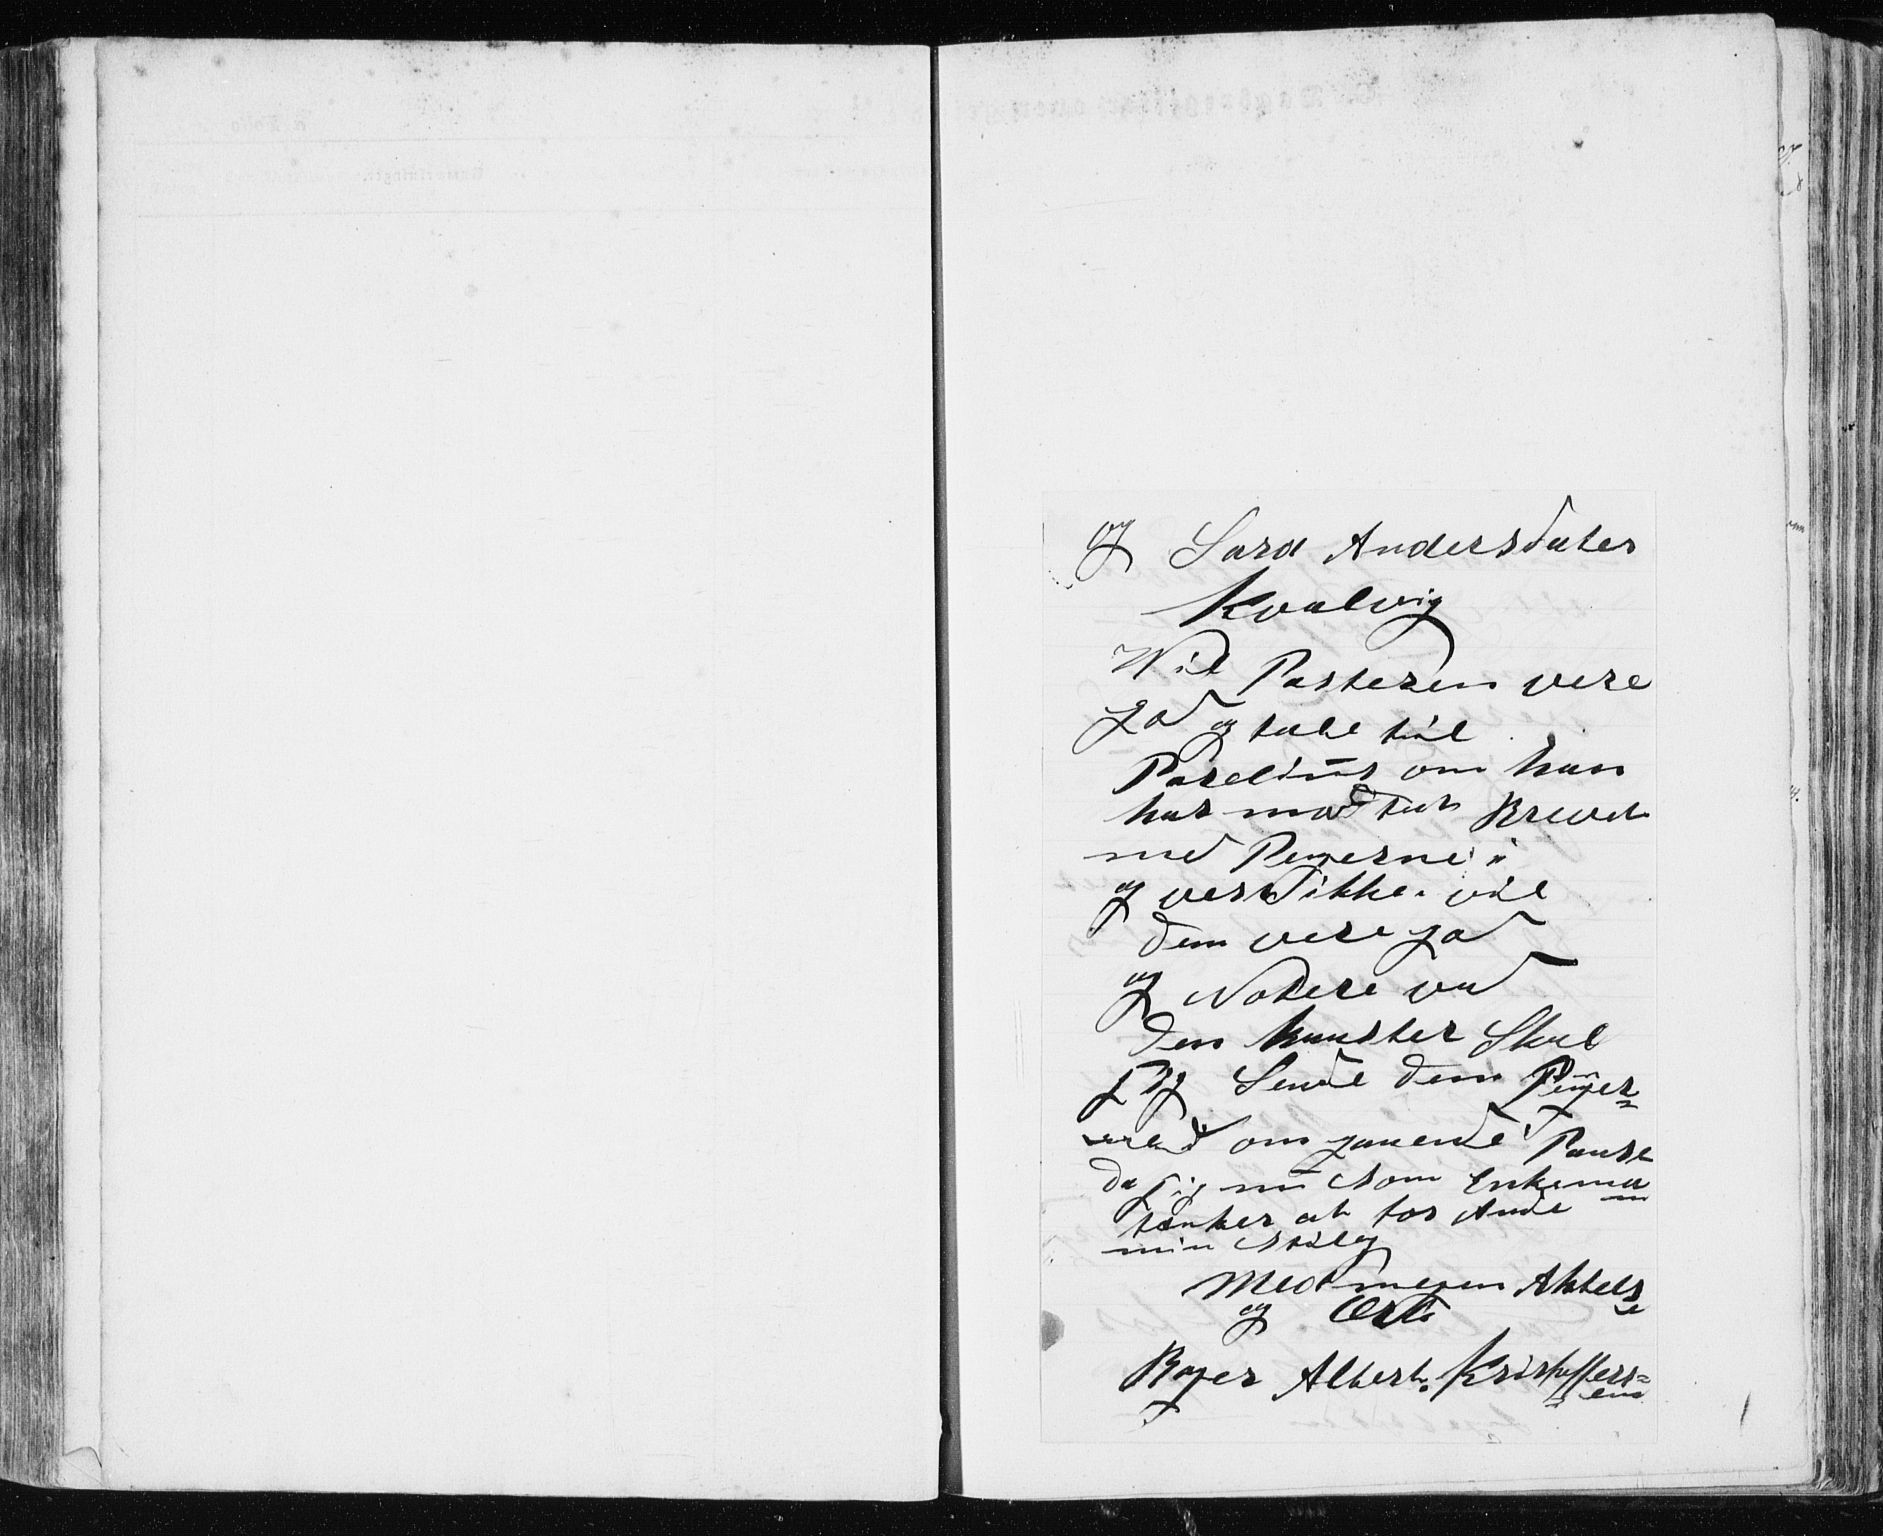 og Sara Andersdater
Kvalvig
Wil Pasteren vere
god og tale til
Parelius om han
har modtat Brevet
med Pengerne i
og verst ikke. vil
dem vere god
og Notere vad
den kunster Skal
jeg Sende dem Penger
med omgaaende Post
da jeg nu som Enkeman
tenker at for Ande
min stilg
Med megen Aktelse
og Erb
Roger Albert. Kristoffersen